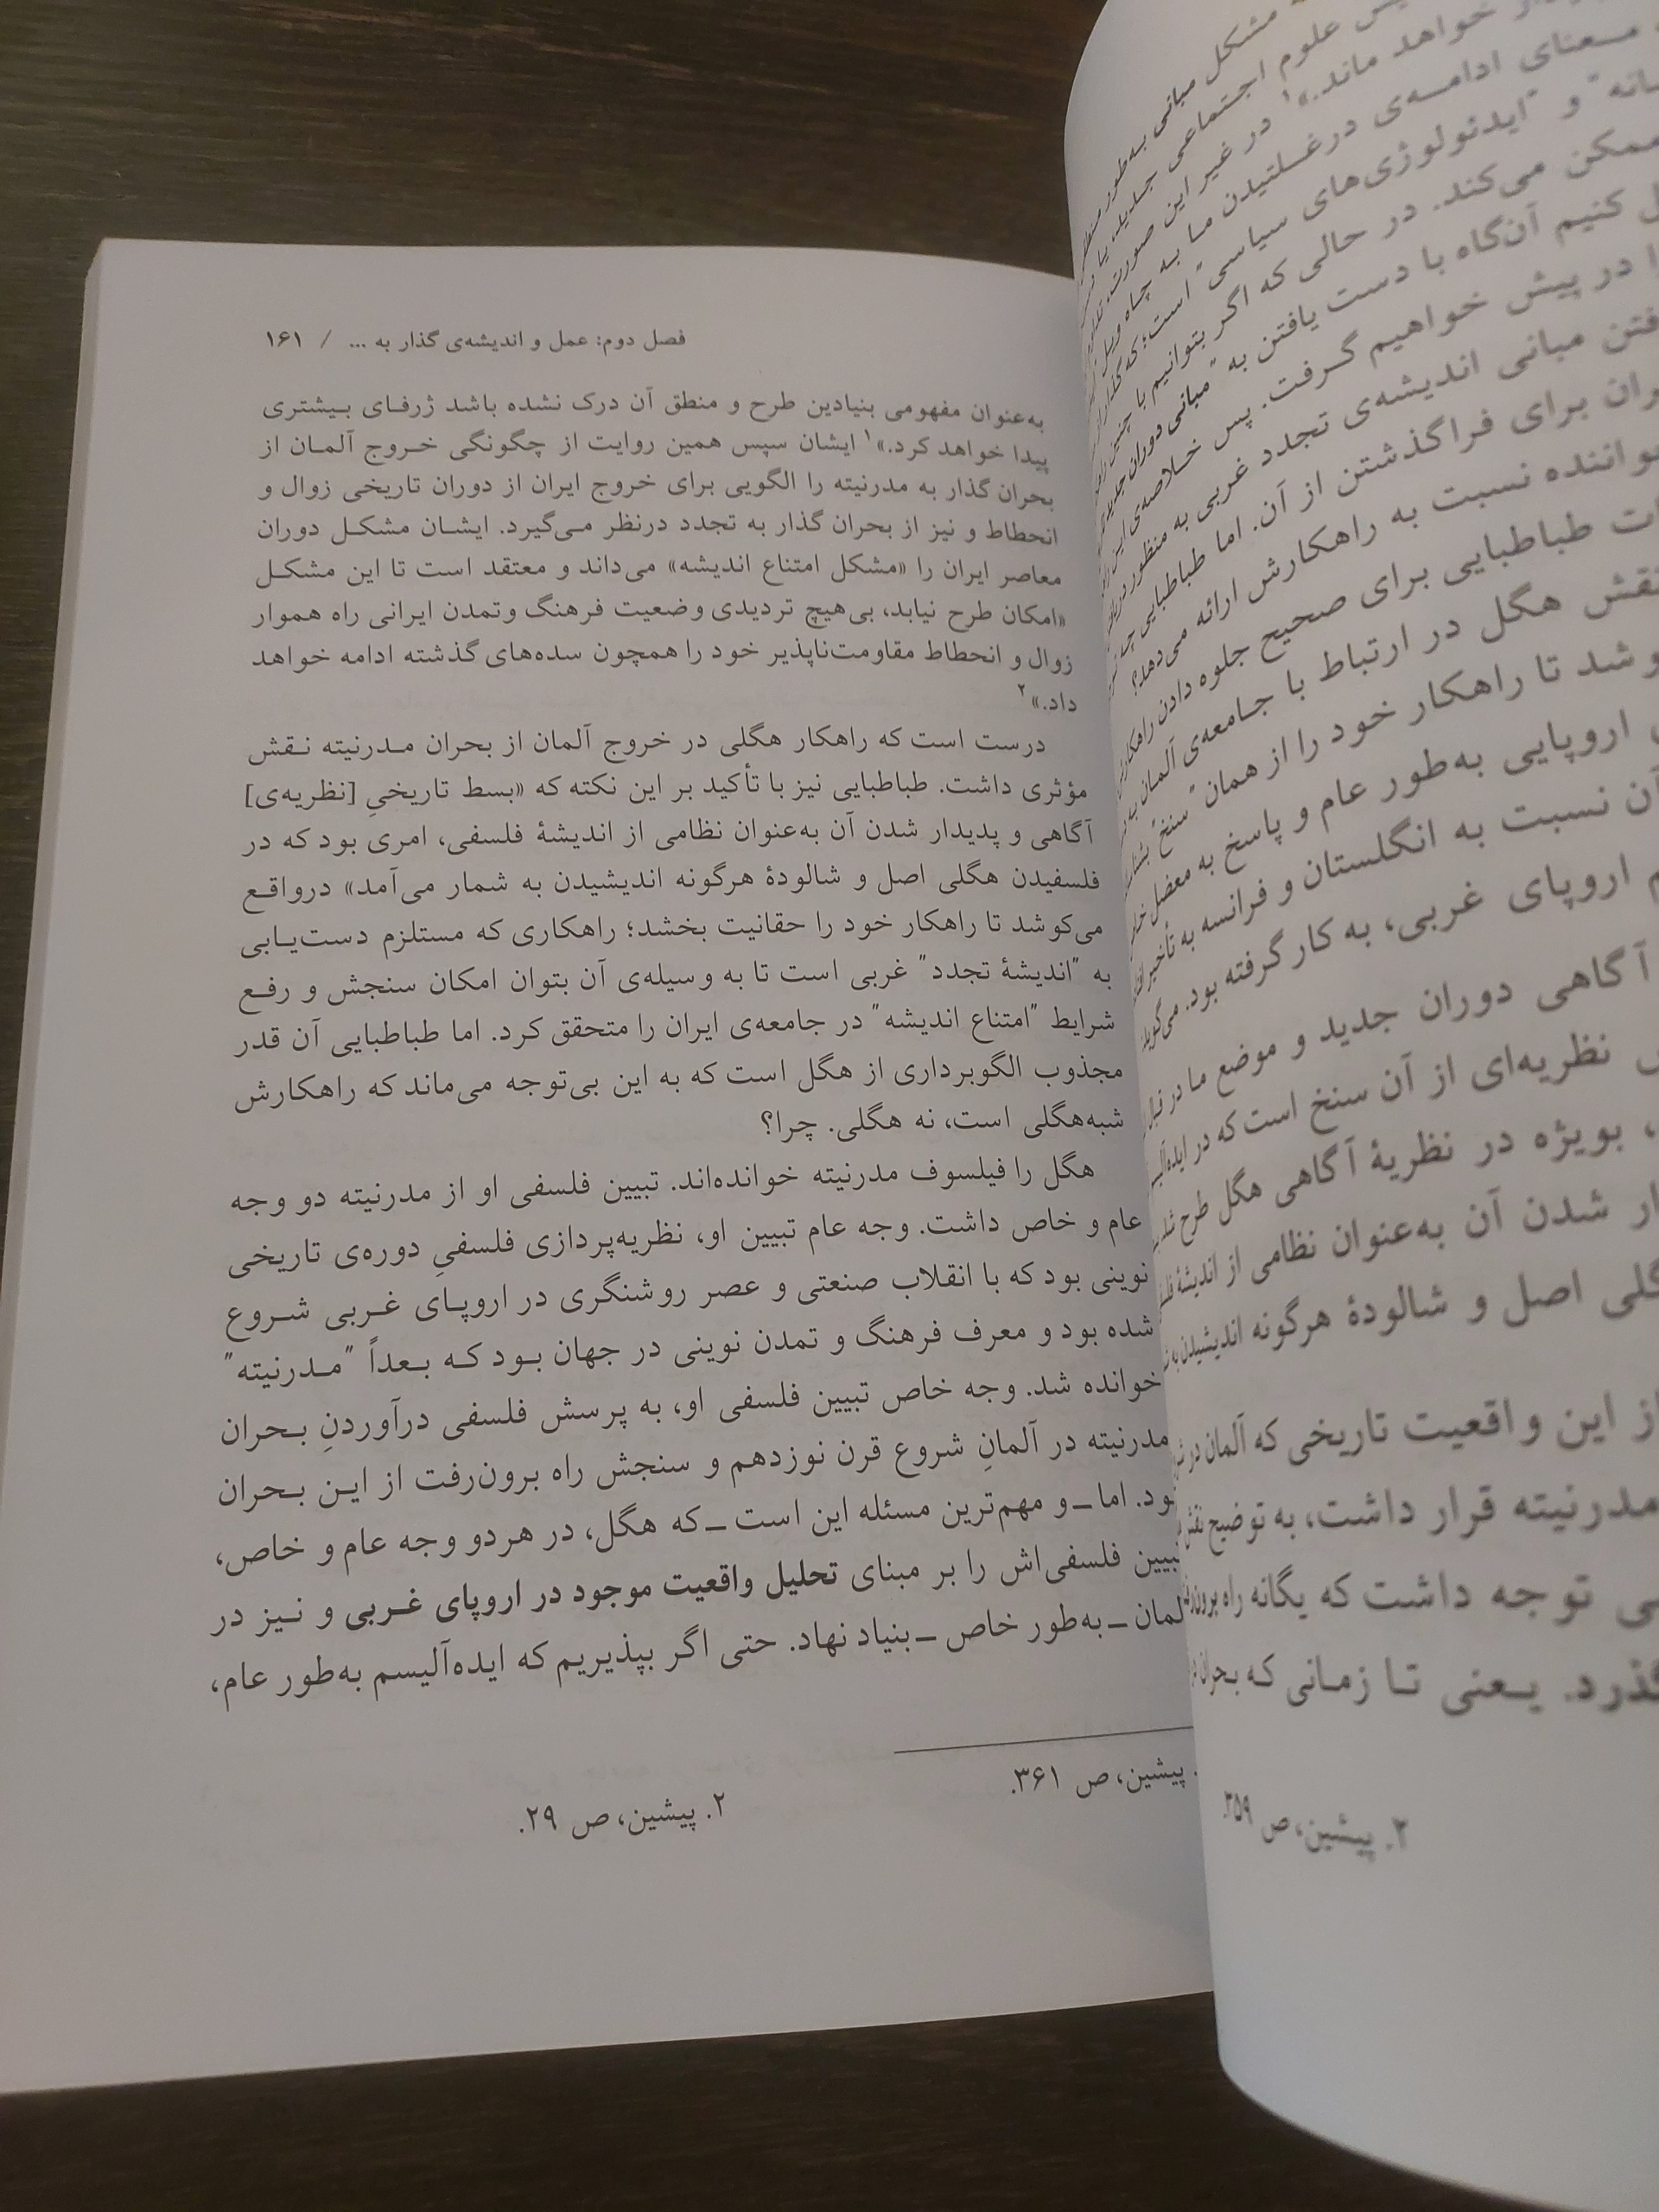 مشکل مبانی به‌طور
علوم اجتماعی جدید، یا
خواهد ماند.»۱ در غیر این صورت،
معنای ادامه‌ی درغلتیدن ما به چاه ویل
و "ایدئولوژی‌های سیاسی" است؛ که گذار از
ممکن می‌کند. در حالی که اگر بتوانیم با چنین
کنیم آن‌گاه با دست یافتن به "مبانی دوران جدید
در پیش خواهیم گرفت. پس خلاصه‌ی این
مبانی اندیشه‌ی تجدد غربی به منظور
برای فراگذشتن از آن. اما طباطبایی چه
نسبت به راهکارش ارائه می‌دهد؟
طباطبایی برای صحیح جلوه دادن راهکارش
نقش هگل در ارتباط با جامعه‌ی آلمان به
شد تا راهکار خود را از همان "سنخ"
اروپایی به‌طور عام و پاسخ به معضل خاص
آن نسبت به انگلستان و فرانسه به تأخیر
اروپای غربی، به کار گرفته بود. می‌گوید
آگاهی دوران جدید و موضع ما در قبال
نظریه‌ای از آن سنخ است که در
، بویژه در نظریهٔ آگاهی هگل طرح
شدن آن به‌عنوان نظامی از اندیشهٔ
اصل و شالودهٔ هرگونه اندیشیدن به
از این واقعیت تاریخی که آلمان در
مدرنیته قرار داشت، به توضیح نقش
توجه داشت که یگانه راه
یعنی تا زمانی که بحران
۲. پیشین، ص ۳۵۹.
فصل دوم: عمل و اندیشه‌ی گذار به ... / ۱۶۱
به‌عنوان مفهومی بنیادین طرح و منطق آن درک نشده باشد ژرفای بیشتری
پیدا خواهد کرد.»۱ ایشان سپس همین روایت از چگونگی خروج آلمان از
بحران گذار به مدرنیته را الگویی برای خروج ایران از دوران تاریخی زوال و
انحطاط و نیز از بحران گذار به تجدد درنظر می‌گیرد. ایشان مشکل دوران
معاصر ایران را «مشکل امتناع اندیشه» می‌داند و معتقد است تا این مشکل
«امکان طرح نیابد، بی‌هیچ تردیدی وضعیت فرهنگ وتمدن ایرانی راه هموار
زوال و انحطاط مقاومت‌ناپذیر خود را همچون سده‌های گذشته ادامه خواهد
داد.»۲
درست است که راهکار هگلی در خروج آلمان از بحران مدرنیته نقش
مؤثری داشت. طباطبایی نیز با تأکید بر این نکته که «بسط تاریخیِ [نظریه‌ی]
آگاهی و پدیدار شدن آن به‌عنوان نظامی از اندیشهٔ فلسفی، امری بود که در
فلسفیدن هگلی اصل و شالودهٔ هرگونه اندیشیدن به شمار می‌آمد» درواقع
می‌کوشد تا راهکار خود را حقانیت بخشد؛ راهکاری که مستلزم دست‌یابی
به "اندیشهٔ تجدد" غربی است تا به وسیله‌ی آن بتوان امکان سنجش و رفع
شرایط "امتناع اندیشه" در جامعه‌ی ایران را متحقق کرد. اما طباطبایی آن قدر
مجذوب الگوبرداری از هگل است که به این بی‌توجه می‌ماند که راهکارش
شبه‌هگلی است، نه هگلی. چرا؟
هگل را فیلسوف مدرنیته خوانده‌اند. تبیین فلسفی او از مدرنیته دو وجه
عام و خاص داشت. وجه عام تبیین او، نظریه‌پردازی فلسفیِ دوره‌ی تاریخی
نوینی بود که با انقلاب صنعتی و عصر روشنگری در اروپای غربی شروع
شده بود و معرف فرهنگ و تمدن نوینی در جهان بود که بعداً "مدرنیته"
خوانده شد. وجه خاص تبیین فلسفی او، به پرسش فلسفی درآوردنِ بحران
مدرنیته در آلمانِ شروع قرن نوزدهم و سنجش راه برون‌رفت از این بحران
بود. اما ـ و مهم‌ترین مسئله این است ـ که هگل، در هردو وجه عام و خاص،
تبیین فلسفی‌اش را بر مبنای تحلیل واقعیت موجود در اروپای غربی و نیز در
آلمان ـ به‌طور خاص ـ بنیاد نهاد. حتی اگر بپذیریم که ایده‌آلیسم به‌طور عام،
. پیشین، ص ۳۶۱.
۲. پیشین، ص ۲۹.